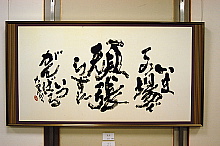 いま
この場で
頑張
らずに
いつ
がんばる